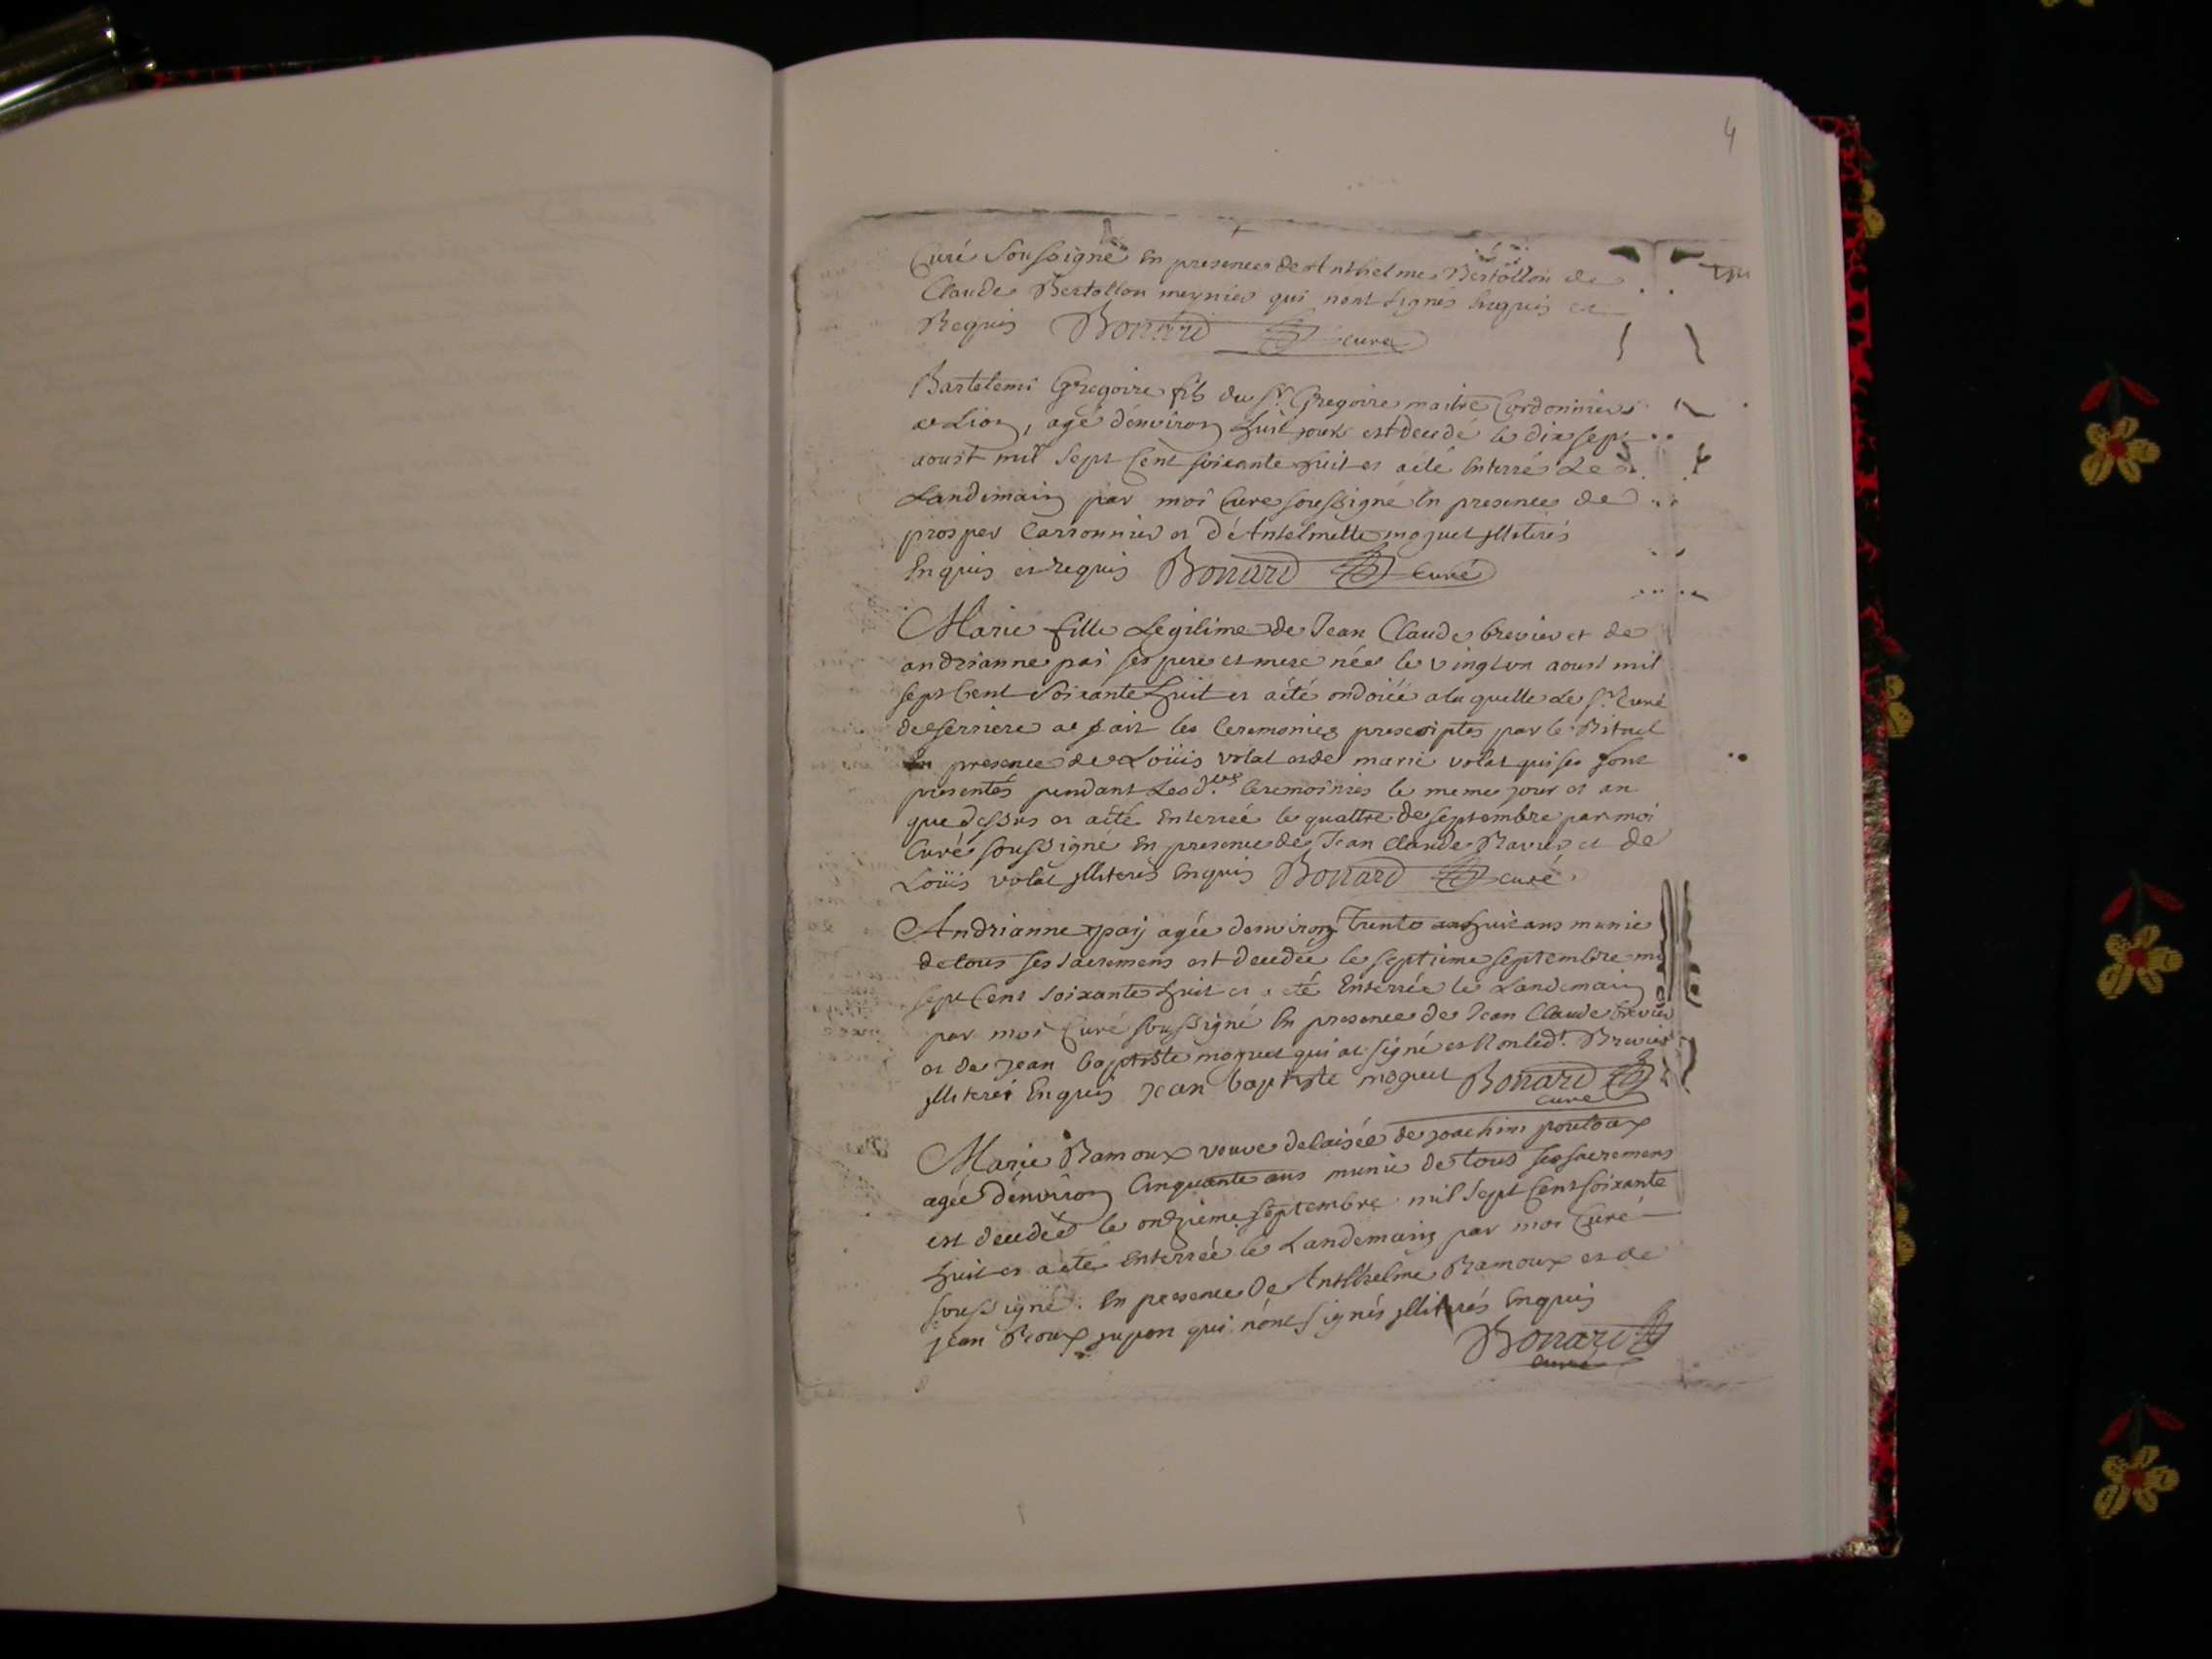 4
Curé Soussigné En presence de Anthelme Bertollon de
Claude Bertollon meynier qui nont signés Enquis et
Requis Bonard curé
Bartelemi Gregoire fils du Sr. Gregoire maitre Cordonnier
a Lion, agé d'environ huit jours est decedé le dix sept
aoust mil sept Cent soixante huit et a eté Enterré Le
Landemain par moi Curé soussigné En presence de
prosper Carronnier et d'Antelmette moguet jlliterés
Enquis et requis Bonard Curé
Marie fille Legitime de Jean Claude brevier et de
andrianne pai ses pere et mere née le vingt un aoust mil
sept Cent Soixante huit et a été ondoiée a la quelle Le Sr. Curé
de serriere at fait les Ceremonies prescriptes par le Rituel
En presence de Loüis volat et de marie volat qui se sont
presentés pendant Lesd.tes Ceremoinies le meme jour et an
que dessus et a eté Enterrée le quattre de septembre par moi
Curé soussigné En presence de Jean Claude et de
Loüis volat jlliterés Enquis Bonard curé
Andrianne pay agée d'environ Trente huit ans munie
de tous ses sacremens est decedée le septieme septembre mil
sept Cent soixante huit et a eté Enterrée le Landemain
par moi Curé soussigné En presence de Jean Claude brevier
et de Jean baptiste moguet qui at signé et Non led.t Brevier
jlliteré Enquis Jean baptiste moguet Bonard
curé
Marie Ramoux veuve delaisée de joachim
agée d'environ Cinquante ans munie de tous ses sacremens
est decedée le onzieme septembre mil sept Cent soixante
huit et a eté Enterrée le Landemain par moi Curé
soussigné. En presence de Antthelme Ramoux et de
jean Rioux jupon qui n'ont signés jlliterés Enquis
Bonard
curé